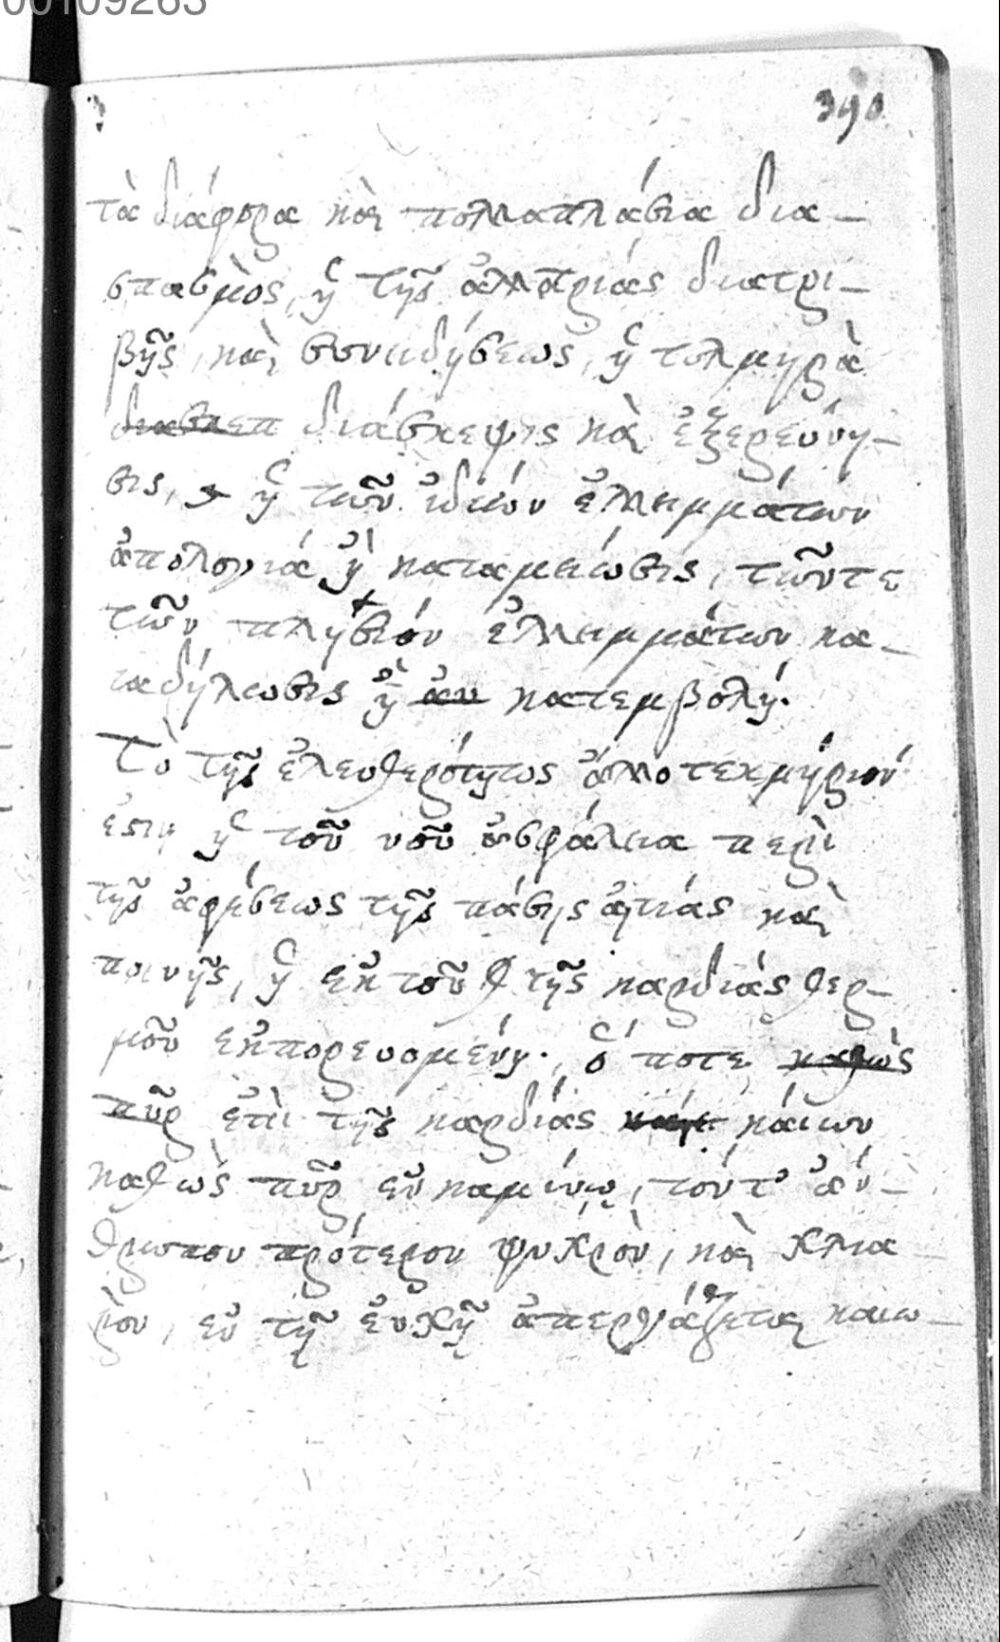 00109263
390
τὰ διάφορα καὶ πολλαπλάσια δια-
σπασμὸς, ἡ τῆς ἀλλοτριάς διατρι-
βῆς, καὶ συνειδήσεως, ἡ τολμηρὰ
διασκεπ διάσκεψις καὶ ἐξερεύνη-
σις, ἡ τῶν ἰδιών ἐλλειμμάτων
ἀπολογιά ἢ καταμείωσις, τῶντε
τῶν πλησιόν ἐλλειμμάτων κα-
ταδήλωσις ἢ ἀν κατεμβολή.
Τὸ τῆς ἐλευθερότητος ἄλλο τεκμήριόν
ἐστιν ἡ τοῦ νοῦ ἀσφάλεια περὶ
τῆς ἀφέσεως τῆς πάσης αἰτιάς καὶ
ποινῆς, ἡ ἐκ τοῦ τῆς καρδιάς θερ-
μοῦ ἐκπορευομένη. ὅ ποτε καθὼς
πῦρ ἐπὶ τῆς καρδιάς καίει κάιων
καθὼς πῦρ ἐν καμίνῳ, τόντ' ἀν-
θρωπον πρότερον ψυχρὸν, καὶ χλια
ρὸν, ἐν τῇ ἐυχῇ ἀπεργάζεται καιω-